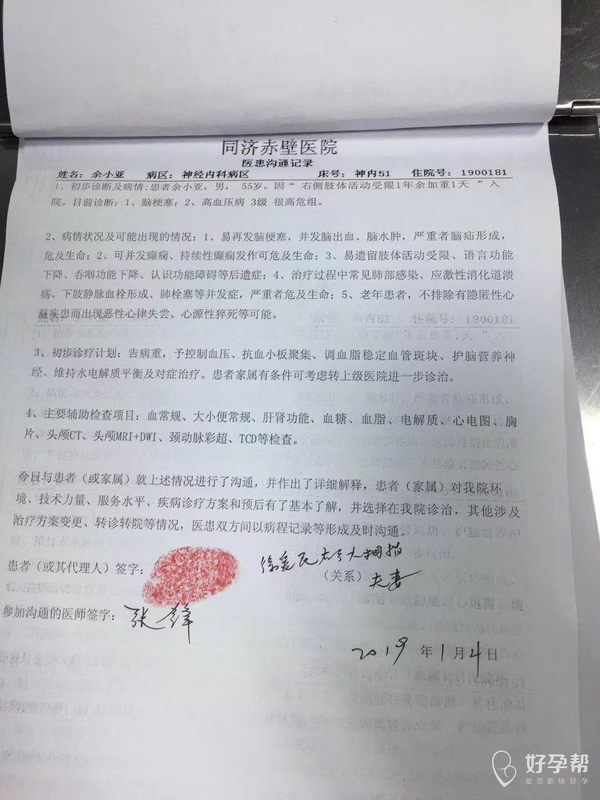 同济赤壁医院
医患沟通记录
姓名：余小亚 病区：神经内科病区 床号：神内51 住院号：1900181
1、初步诊断及病情:患者余小亚，男， 55岁。因“ 右侧肢体活动受限1年余加重1天 ”入
院。目前诊断：1、脑梗塞；2、高血压病 3级 很高危组。
2、病情状况及可能出现的情况：1、易再发脑梗塞，并发脑出血、脑水肿，严重者脑疝形成，
危及生命；2、可并发癫痫、持续性癫痫发作可危及生命；3、易遗留肢体活动受限、语言功能
下降、吞咽功能下降、认识功能障碍等后遗症；4、治疗过程中常见肺部感染、应激性消化道溃
疡、下肢静脉血栓形成、肺栓塞等并发症，严重者危及生命；5、老年患者，不排除有隐匿性心
脏疾患而出现恶性心律失尝、心源性猝死等可能。
3、初步诊疗计划：告病重，予控制血压、抗血小板聚集、调血脂稳定血管斑块、护脑营养神
经、维持水电解质平衡及对症治疗。患者家属有条件可考虑转上级医院进一步诊治。
4、主要辅助检查项目：血常规、大小便常规、肝肾功能、血糖、血脂、电解质、心电图、胸
片、头颅CT、头颅MRI+DWI、颈动脉彩超、TCD等检查。
今日与患者（或家属）就上述情况进行了沟通，并作出了详细解释，患者（家属）对我院环
境、技术力量、服务水平、疾病诊疗方案和预后有了基本了解，并选择在我院诊治，其他涉及
治疗方案变更、转诊转院等情况，医患双方间以病程记录等形成及时沟通。
患者（或其代理人）签字：
（关系）夫妻
参加沟通的医师签字：张锋
2019 年 1 月 4 日
好孕帮
助您更快好孕